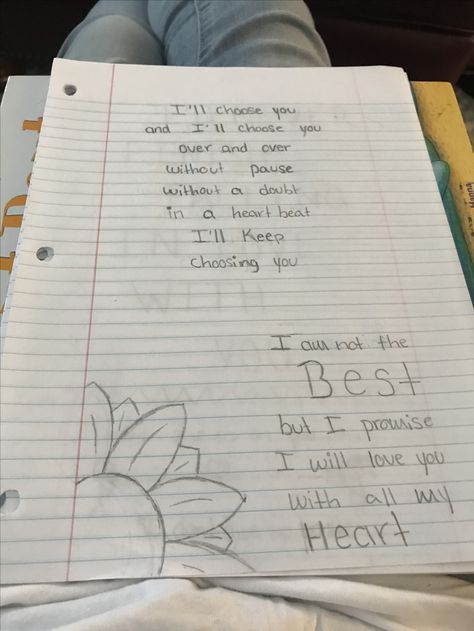 I'll choose you
and I'll choose you
over and over
without pause
without a doubt
in a heart beat
I'll Keep
choosing you
I am not the
Best
but I promise
I will love you
with all my
Heart